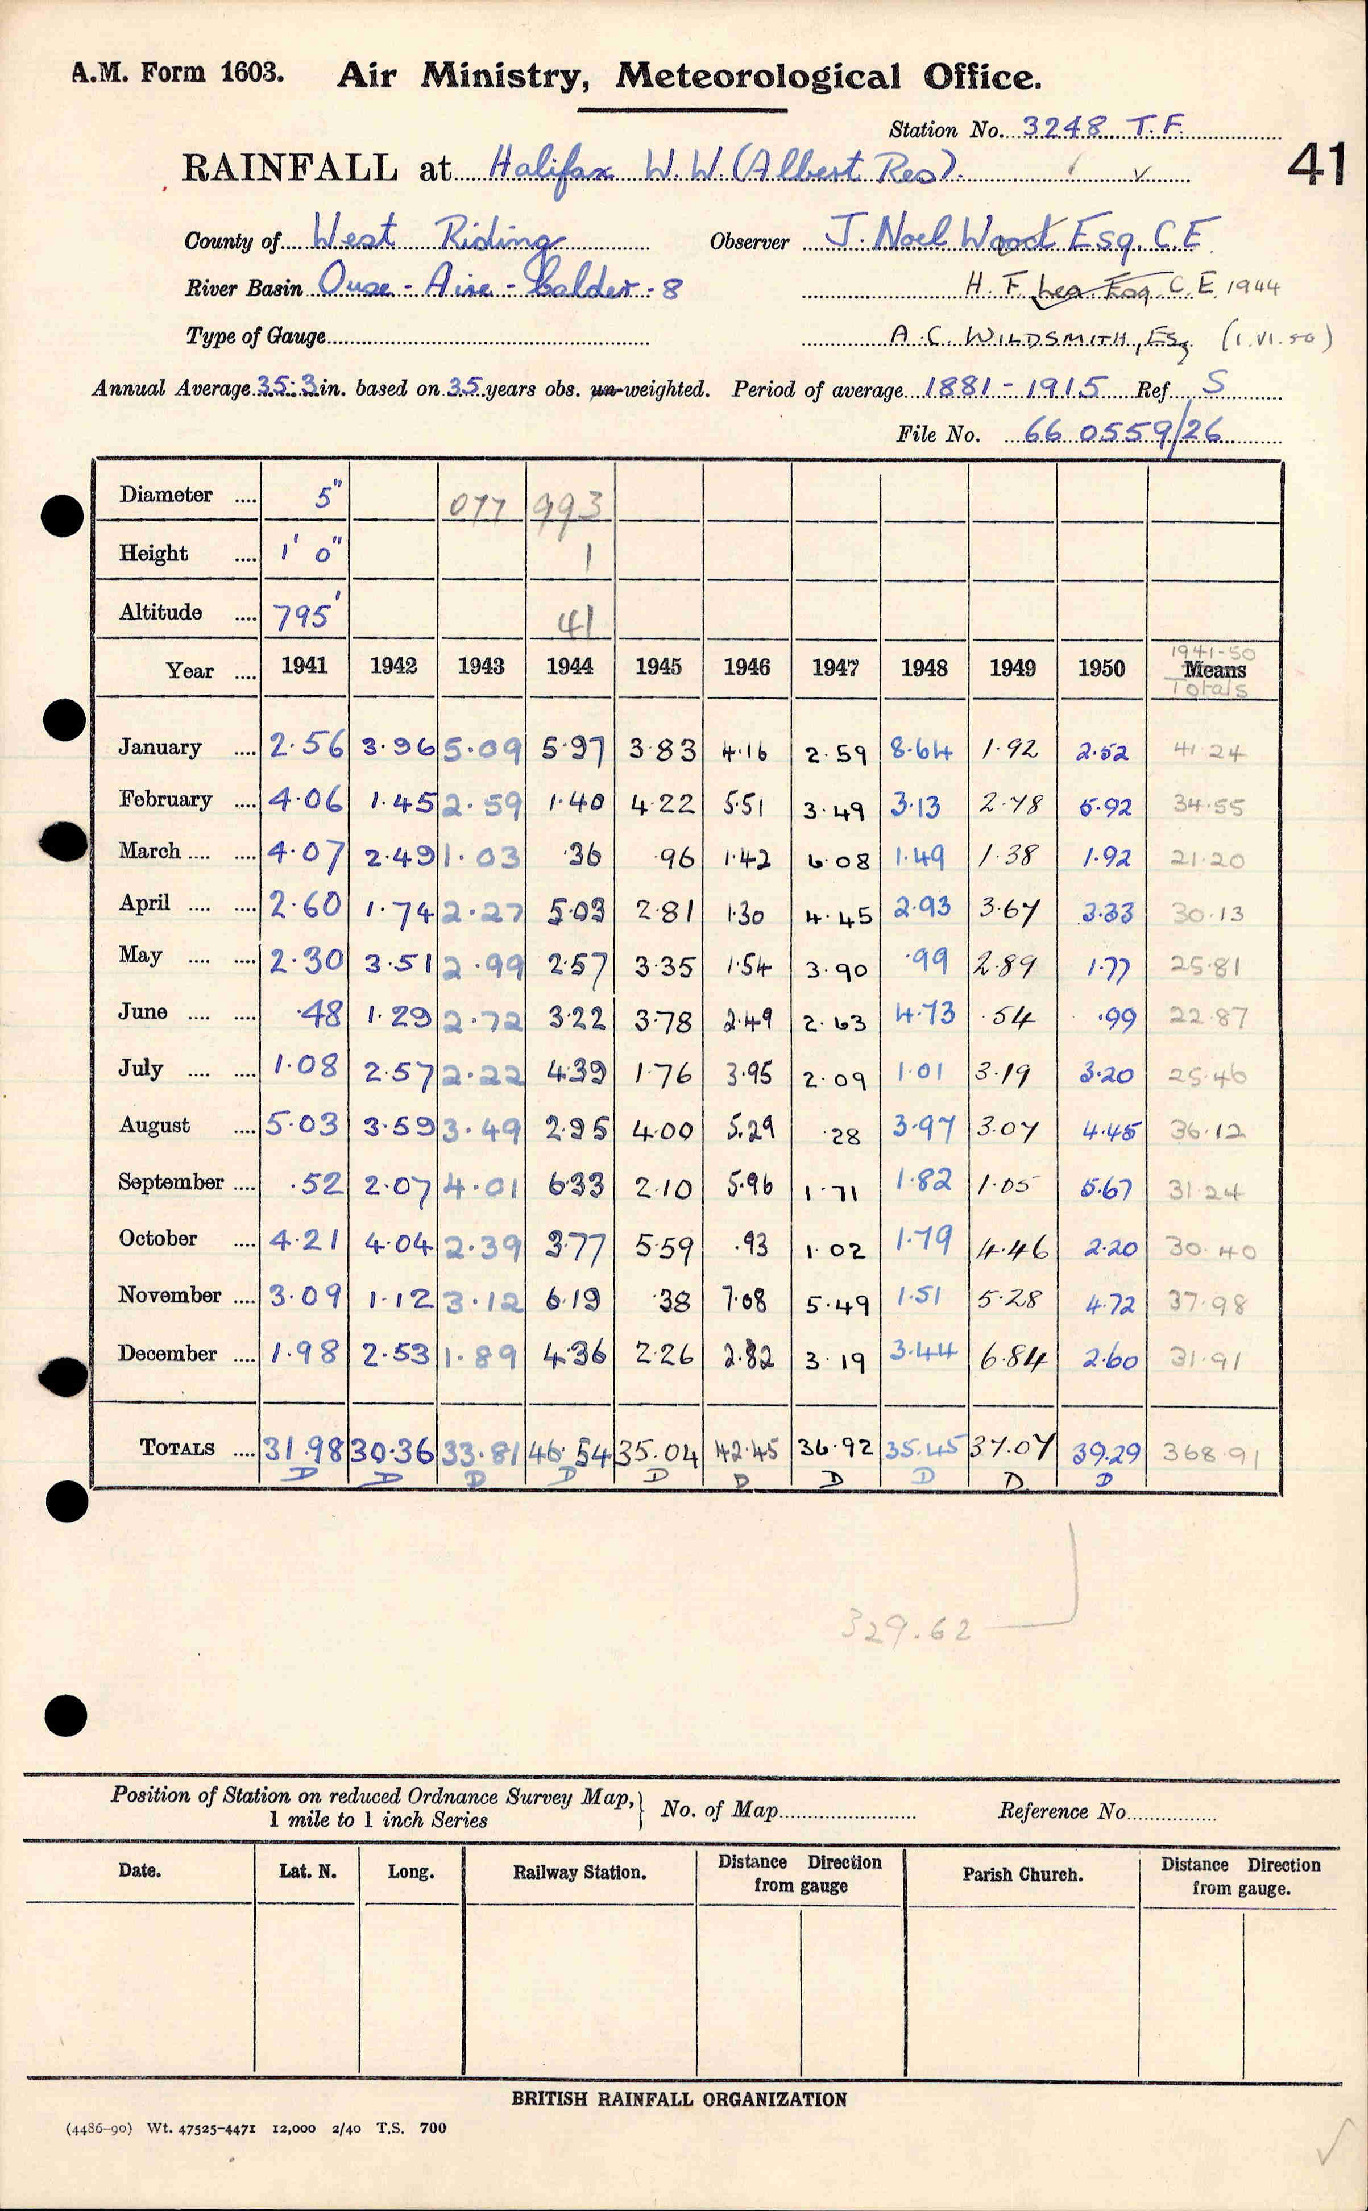 A.M. Form 1603. Air Ministry, Meteorological Office.
Station No. 3248 T.F.
41
RAINFALL at Halifax W.W. (Albert Res).
County of West Riding Observer J. Noel Wood Esq. C.E.
River Basin Ouse - Aire - Calder - 8 H. F. Lea Esq. C.E. 1944
Type of Gauge A. C. WILDSMITH, Esq (1.VI.50)
Annual Average 35.3 in. based on 35 years obs. un-weighted. Period of average 1881 - 1915 Ref S
File No. 66 0559/26
Diameter .... 5" 077 993
Height .... 1' 0" 1
Altitude .... 795' 41
Year .... 1941 1942 1943 1944 1945 1946 1947 1948 1949 1950 1941-50 Means Totals
January .... 2.56 3.96 5.09 5.97 3.83 4.16 2.59 8.64 1.92 2.52 41.24
February .... 4.06 1.45 2.59 1.40 4.22 5.51 3.49 3.13 2.78 5.92 34.55
March .... .... 4.07 2.49 1.03 .36 .96 1.42 6.08 1.49 1.38 1.92 21.20
April .... .... 2.60 1.74 2.27 5.03 2.81 1.30 4.45 2.93 3.67 3.33 30.13
May .... .... 2.30 3.51 2.99 2.57 3.35 1.54 3.90 .99 2.89 1.77 25.81
June .... .... .48 1.29 2.72 3.22 3.78 2.49 2.63 4.73 .54 .99 22.87
July .... .... 1.08 2.57 2.22 4.39 1.76 3.95 2.09 1.01 3.19 3.20 25.46
August .... 5.03 3.59 3.49 2.95 4.00 5.29 .28 3.97 3.07 4.45 36.12
September .... .52 2.07 4.01 6.33 2.10 5.96 1.71 1.82 1.05 5.67 31.24
October .... 4.21 4.04 2.39 3.77 5.59 .93 1.02 1.79 4.46 2.20 30.40
November .... 3.09 1.12 3.12 6.19 .38 7.08 5.49 1.51 5.28 4.72 37.98
December .... 1.98 2.53 1.89 4.36 2.26 2.82 3.19 3.44 6.84 2.60 31.91
TOTALS .... 31.98 30.36 33.81 46.54 35.04 42.45 36.92 35.45 37.07 39.29 368.91
D D D D D D D D D D
329.62
Position of Station on reduced Ordnance Survey Map, 1 mile to 1 inch Series } No. of Map Reference No.
Date. Lat. N. Long. Railway Station. Distance Direction from gauge Parish Church. Distance Direction from gauge.
BRITISH RAINFALL ORGANIZATION
(4486-90) Wt. 47525-4471 12,000 2/40 T.S. 700